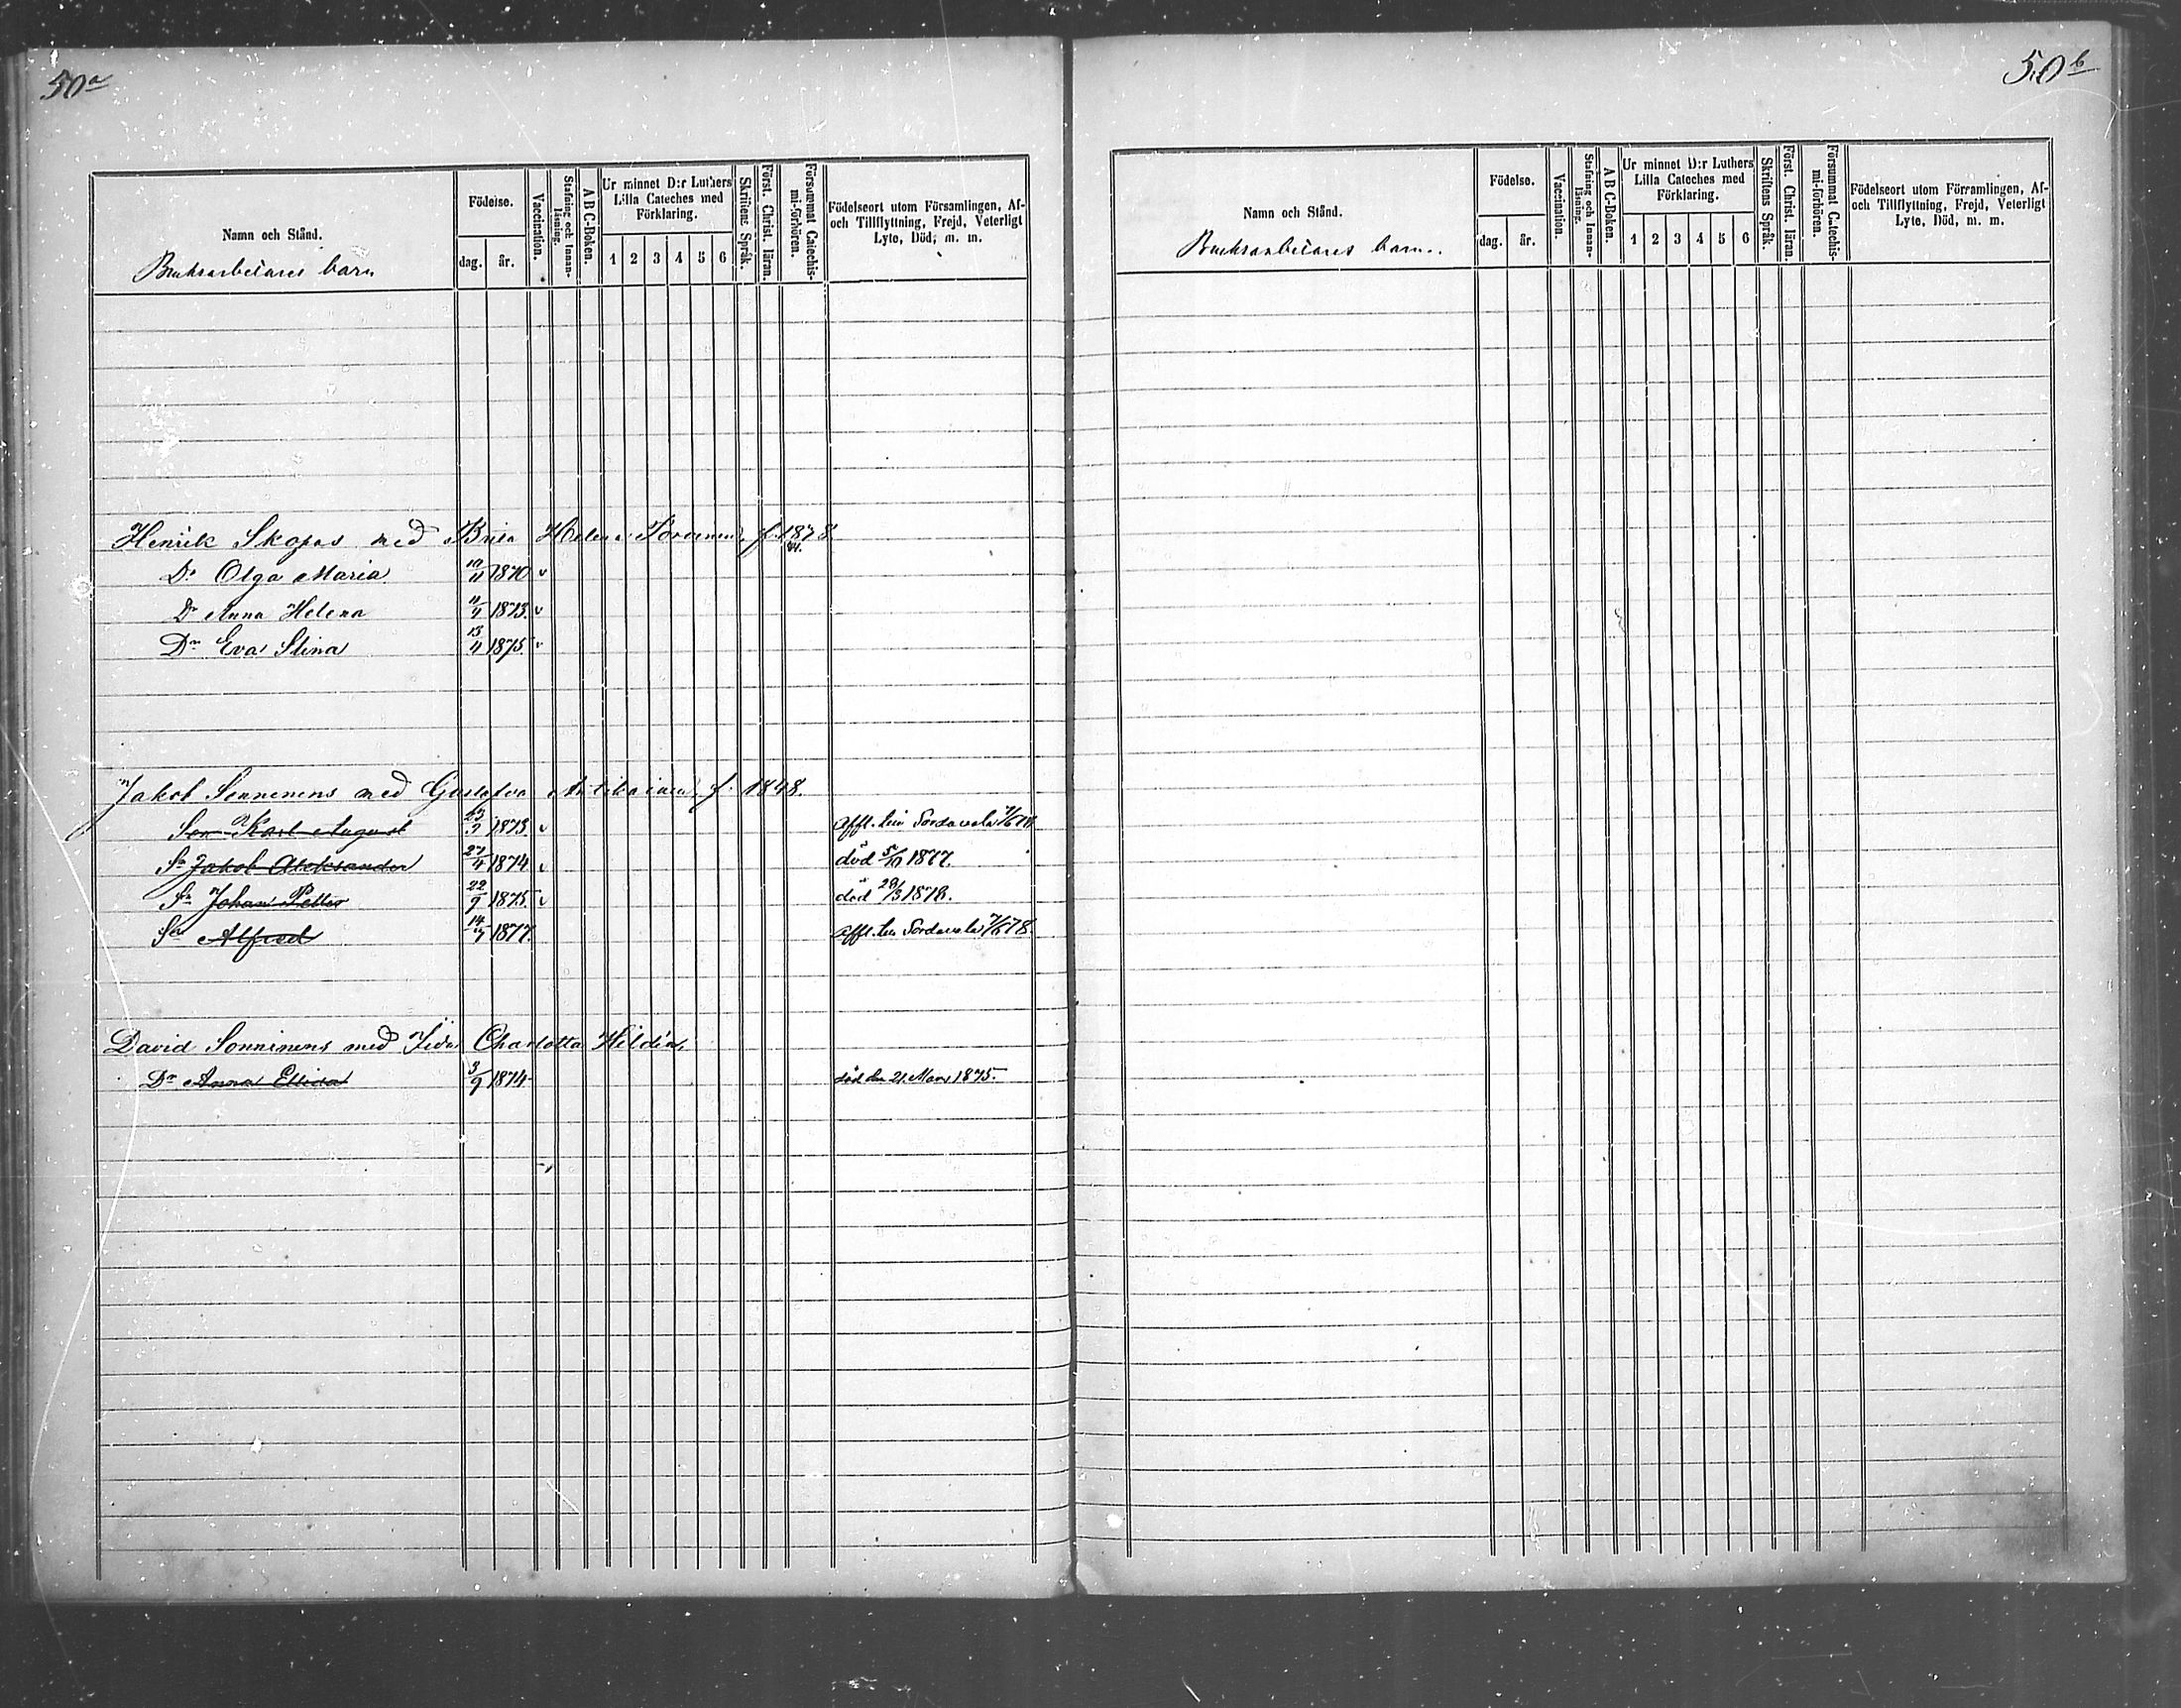 50a
Namn och Stånd.
Bruksarbetares barn
Födelse.
dag. år.
Vaccination.
Stafning och Innan-läsning.
A B C-Boken.
Ur minnet D:r Luthers
Lilla Cateches med
Förklaring.
1 2 3 4 5 6
Skriftens Språk.
Först. Christ. läran.
Försummat Catechis-mi-förhören.
Födelseort utom Församlingen, Af-
och Tillflyttning, Frejd, Veterligt
Lyte, Död, m. m.
Henrik Skopas med Brita Helena f. 1878
Dr Olga Maria 10/11 1870 v
Dr Anna Helena 11/7 1873. v
Dr Eva Stina 13/4 1875. v
Jakob Sonninens med Gustafva Antikainen f. 1848.
Son Karl August 23/2 1873. v Affl. till Sordavala
Sn Jakob Aleksander 27/4 1874 v död 5/10 1877.
Sn Johan Petter 22/9 1875. v död 28/3 1878.
Sn Alfred 14/7 1877. Affl. till Sordavala 7/6 78.
David Sonninens med Iida Charlotta Hildén,
Dr Anna Elliida 3/9 1874 död den 21 Mars 1875.
50b
Namn och Stånd.
Bruksarbetares barn.
Födelse.
dag. år.
Vaccination.
Stafning och Innan-läsning.
A B C-Boken.
Ur minnet D:r Luthers
Lilla Cateches med
Förklaring.
1 2 3 4 5 6
Skriftens Språk.
Först. Christ. läran.
Försummat Catechis-mi-förhören.
Födelseort utom Församlingen, Af-
och Tillflyttning, Frejd, Veterligt
Lyte, Död, m. m.